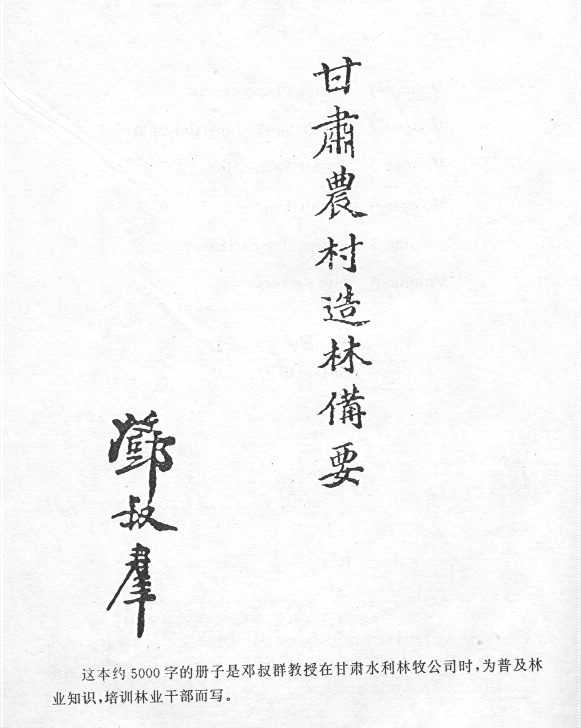 甘肅農村造林備要
鄧叔羣
这本约5000字的册子是邓叔群教授在甘肃水利林牧公司时,为普及林
业知识,培训林业干部而写。